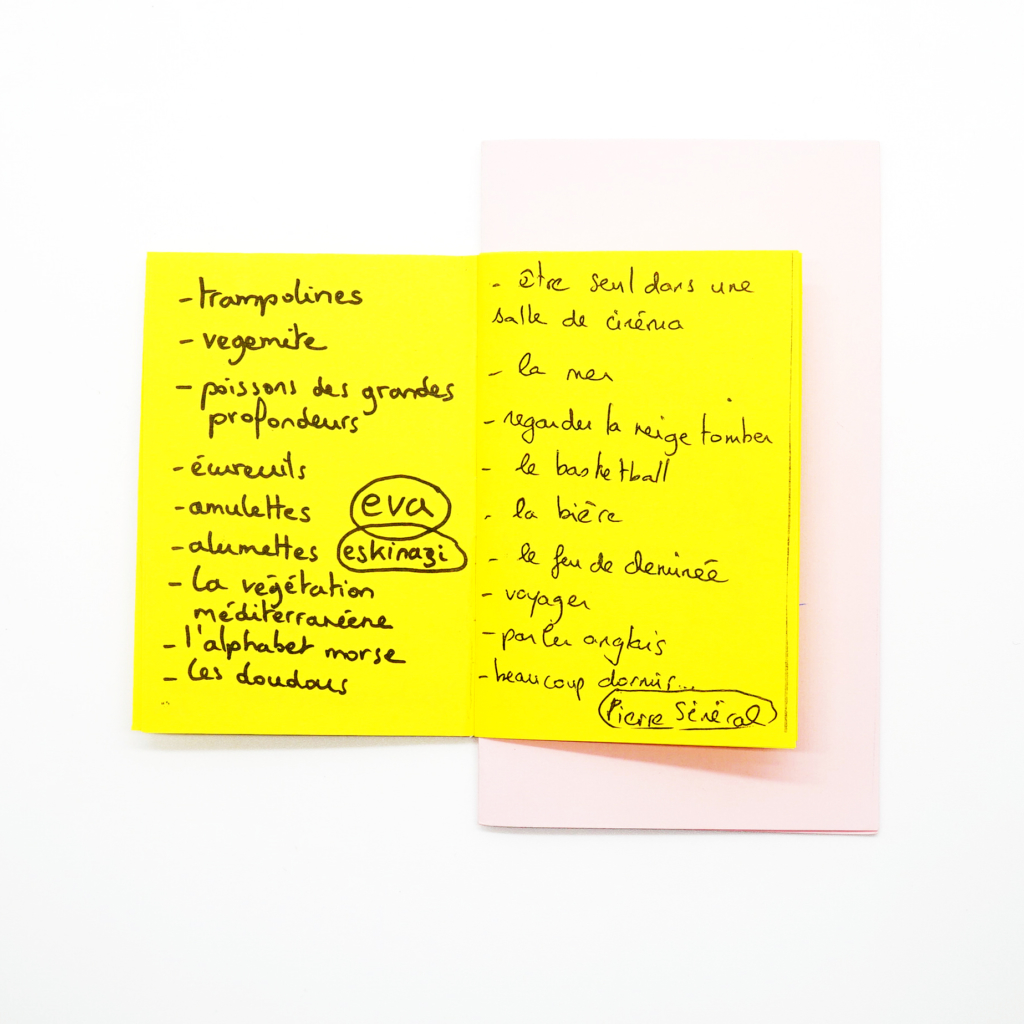 - trampolines
- vegemite
- poissons des grandes
profondeurs
- écureuils
- amulettes
- alumettes
- la végétation
méditerranéene
- l'alphabet morse
- les doudous
eva
eskinazi
- être seul dans une
salle de cinéma
- la mer
- regarder la neige tomber
- le basketball
- la bière
- le feu de cheminée
- voyager
- parler anglais
- beaucoup dormir...
Pierre Sénéral